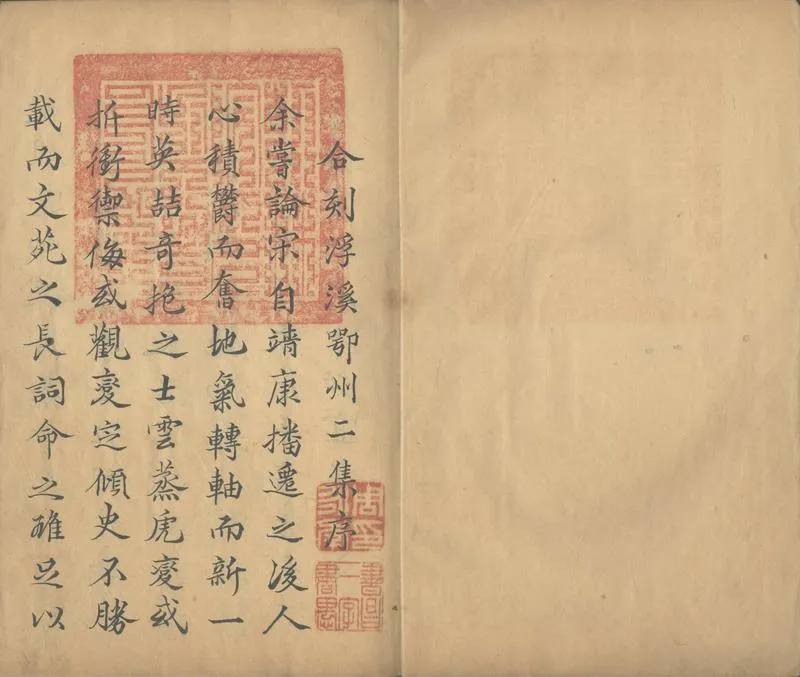 合刻浮溪鄂州二集序
余嘗論宋自靖康播遷之後人
心積欝而奮地氣轉軸而新一
時英喆奇抱之士雲蒸虎變或
折衝禦侮或觀變定傾史不勝
載而文苑之長詞命之雄足以